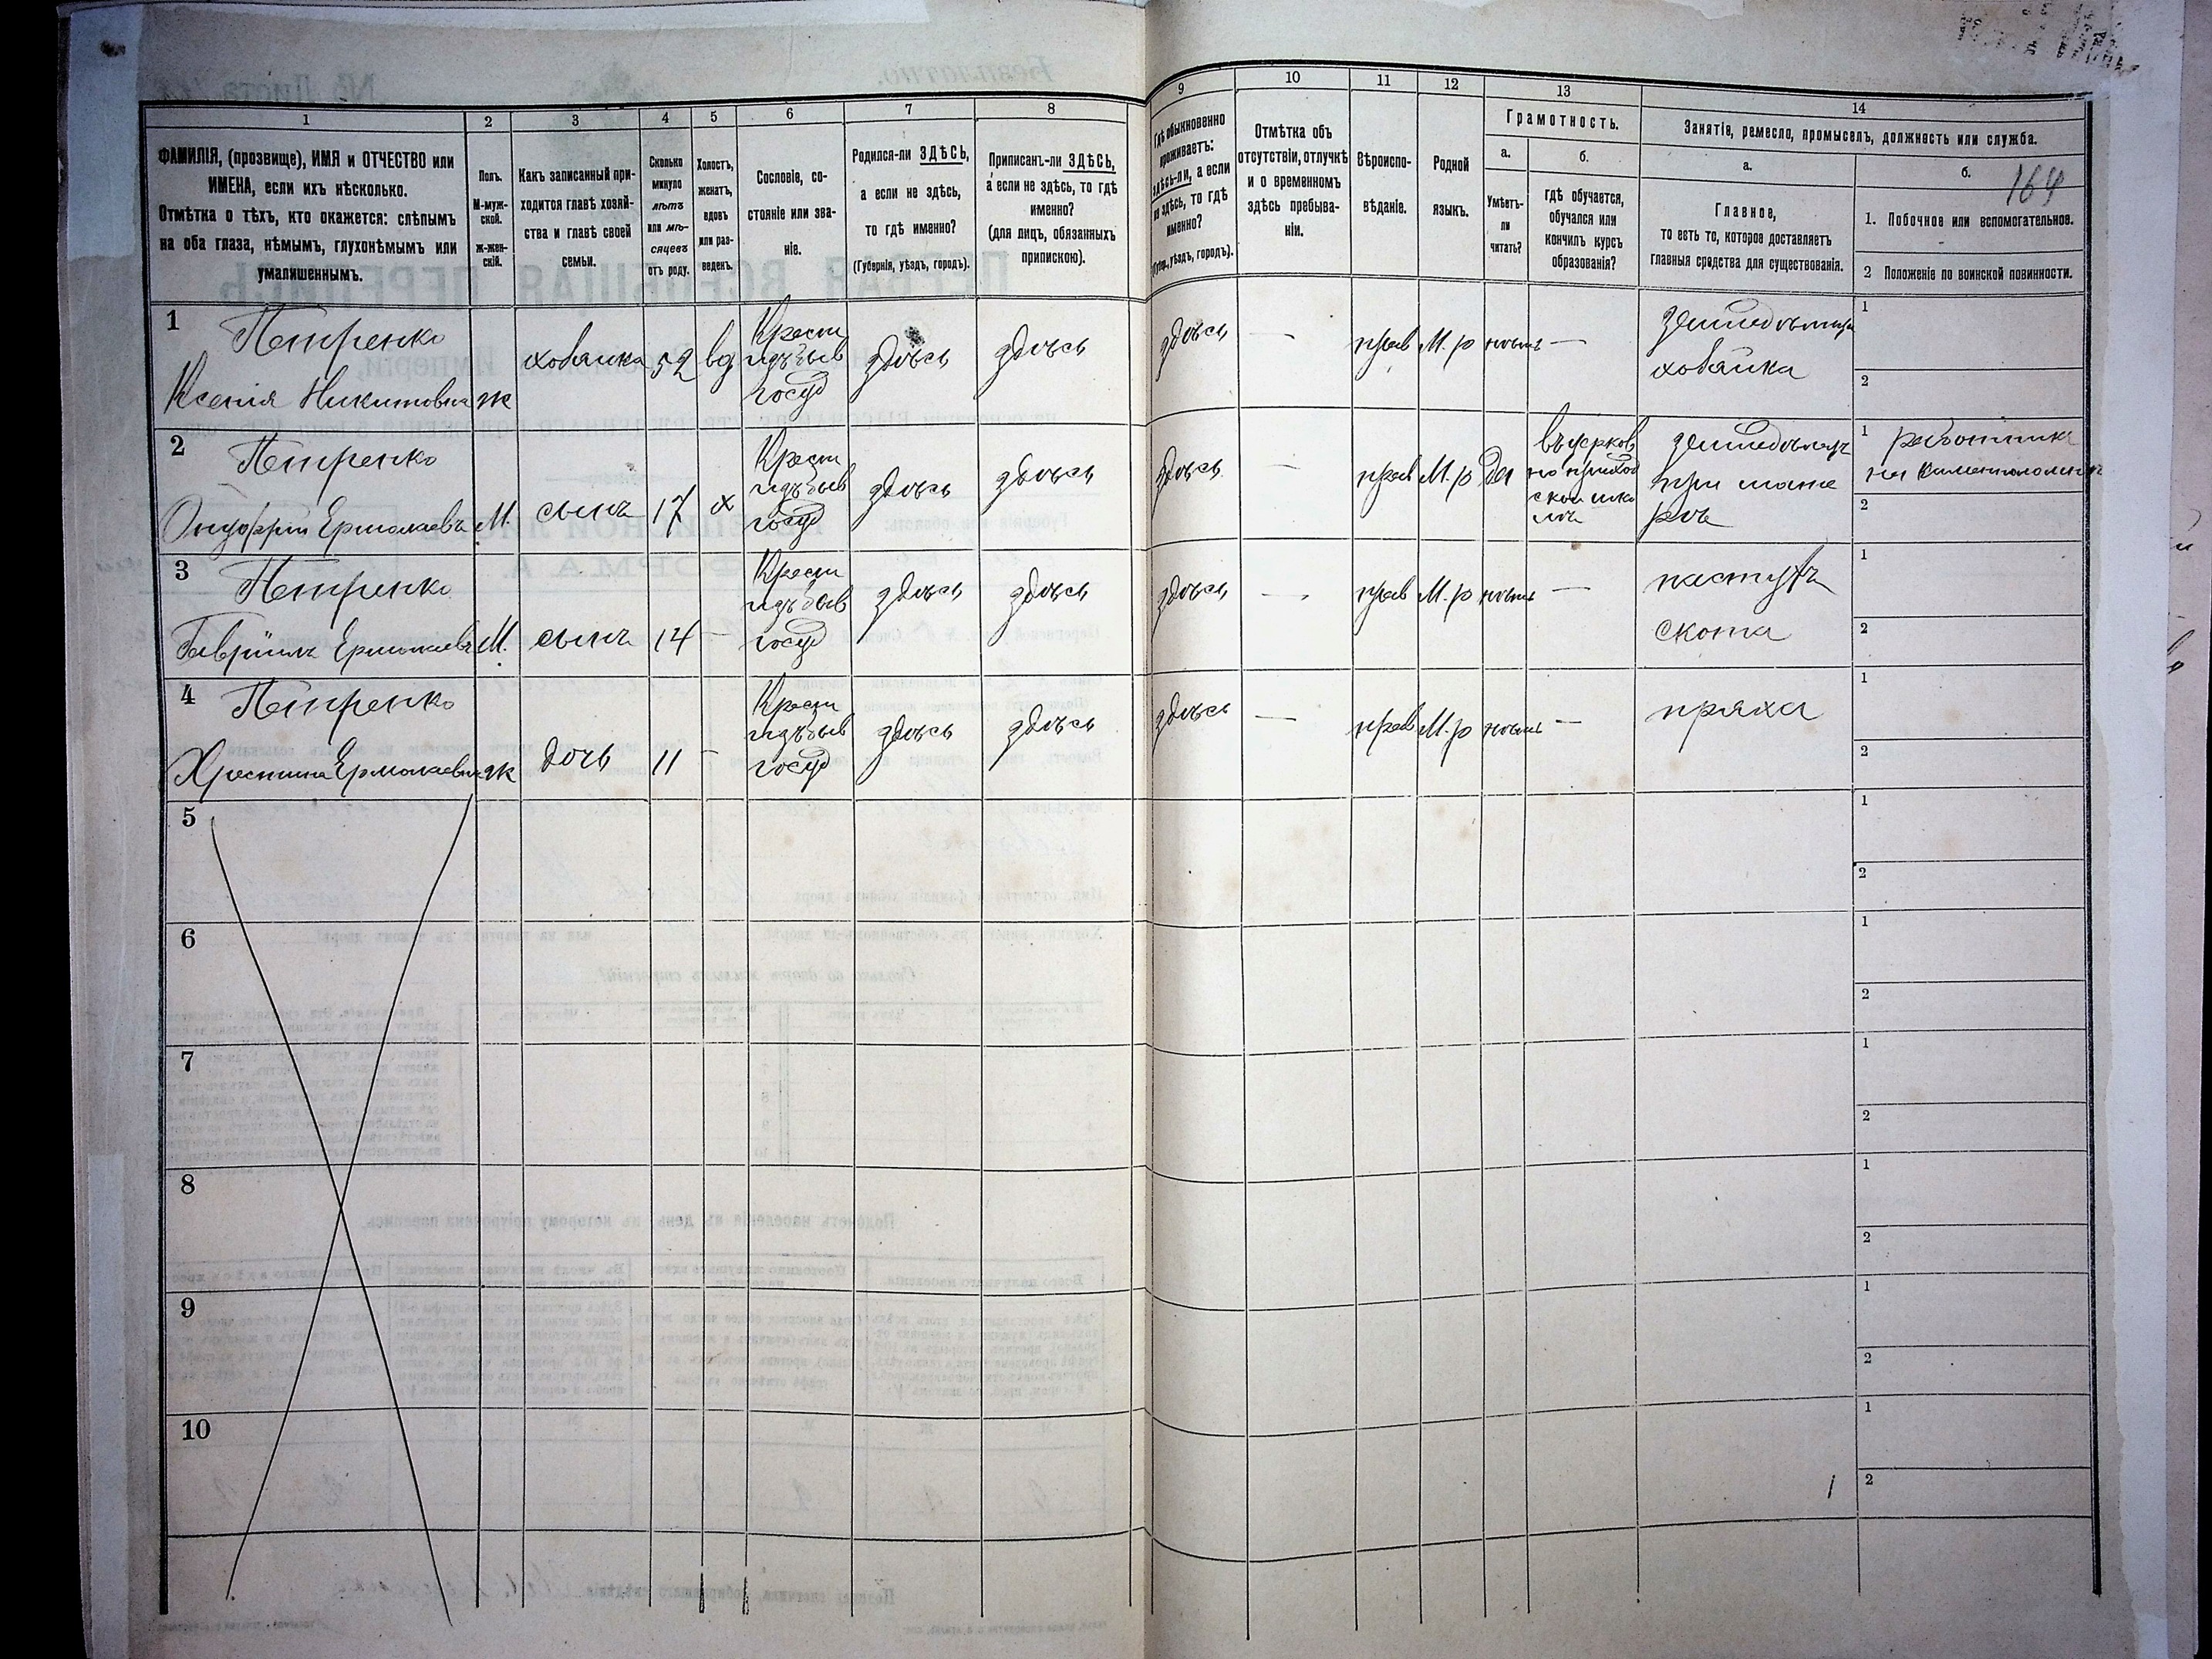 1
2
3
4
5
6
7
8
9
10
11
12
13
14
ФАМИЛІЯ, (прозвище), ИМЯ и ОТЧЕСТВО или
ИМЕНА, если ихъ нѣсколько.
Отмѣтка о тѣхъ, кто окажется: слѣпымъ
на оба глаза, нѣмымъ, глухонѣмымъ или
умалишеннымъ.
Полъ.
М-муж-
ской.
Ж-жен-
скій.
Какъ записанный при-
ходится главѣ хозяй-
ства и главѣ своей
семьи.
Сколько
минуло
лѣтъ
или мѣ-
сяцевъ
отъ роду.
Холостъ,
женатъ,
вдовъ
или раз-
веденъ.
Сословіе, со-
стояніе или зва-
ніе.
Родился-ли ЗДѢСЬ,
а если не здѣсь,
то гдѣ именно?
(Губернія, уѣздъ, городъ).
Приписанъ-ли ЗДѢСЬ,
а если не здѣсь, то гдѣ
именно?
(для лицъ, обязанныхъ
припискою).
Гдѣ обыкновенно
проживаетъ:
здѣсь-ли, а если
не здѣсь, то гдѣ
именно?
уѣздъ, городъ).
Отмѣтка объ
отсутствіи, отлучкѣ
и о временномъ
здѣсь пребыва-
ніи.
Вѣроиспо-
вѣданіе.
Родной
языкъ.
Грамотность.
а.
Умѣетъ-
ли
читать?
б.
гдѣ обучается,
обучался или
кончилъ курсъ
образованія?
Занятіе, ремесло, промыселъ, должность или служба.
а.
Главное,
то есть то, которое доставляетъ
главныя средства для существованія.
б.
164
1. Побочное или вспомогательное.
2 Положеніе по воинской повинности.
1
Петренко
Ксенія Никитовна
ж
хозяйка
52
вд
Крест
изъ быв
госуд
здѣсь
здѣсь
здѣсь
—
прав
М. р
нѣтъ
—
хозяйка
1
2
2
Петренко
Онуфрій Ермолаевъ
М.
сынъ
17
х
Крест
изъ быв
госуд
здѣсь
здѣсь
здѣсь
—
прав
М. р
да
въ церков
но приход
ской шко
лѣ
при мате
ри
1
работникъ
2
3
Петренко
Гавріилъ Ермолаевъ
М.
сынъ
14
—
Крест
изъ быв
госуд
здѣсь
здѣсь
здѣсь
—
прав
М. р
нѣтъ
—
пастухъ
скота
1
2
4
Петренко
Христина Ермолаевна
ж
дочь
11
—
Крест
изъ быв
госуд
здѣсь
здѣсь
здѣсь
—
прав
М. р
нѣтъ
—
пряха
1
2
5
1
2
6
1
2
7
1
2
8
1
2
9
1
2
10
1
2